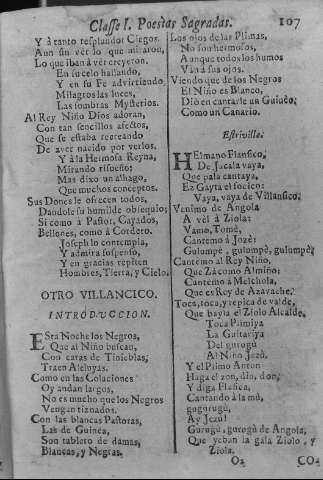 Classe I. Poesias Sagradas. 107
Y à tanto resplandor Ciegos.
Aun sin ver lo que miraron,
Lo que iban à ver creyeron.
En su cielo hallando,
Y en su Fè advirtiendo,
Milagros las luces,
Las sombras Mysterios.
Al Rey Niño Dios adoran,
Con tan sencillos afectos,
Que se estaba recreando
De aver nacido por verlos.
Y à la Hermosa Reyna,
Mirando risueño;
Mas dixo un alhago,
Que muchos conceptos.
Sus Dones le ofrecen todos,
Dandole su humilde obsequio;
Si como à Pastor, Cayados,
Bellones, como à Cordero.
Joseph lo contempla,
Y admira suspenso,
Y en gracias repiten
Hombres, Tierra, y Cielo.
OTRO VILLANCICO.
INTRODUCCION.
ESta Noche los Negros,
Que al Niño buscan,
Con caras de Tinieblas,
Traen Aleluyas.
Como en las Colaciones
Oy andan largos,
No es mucho que los Negros
Vengan tiznados.
Con las blancas Pastoras,
Las de Guinea,
Son tablero de damas,
Blancas, y Negras.
Los ojos de las Plimas,
No son hermosos,
Aunque todos los humos
Van à sus ojos.
Viendo que de los Negros
El Niño es Blanco,
Diò en cantarle un Guineo,
Como un Canario.
Estrivillo.
HElmano Flansico,
De Jacala vaya,
Que pala cantaya,
Ez Gayta el focico:
Vaya, vaya de Villansico.
Venimo de Angola
A vèl à Ziola:
Vamo, Tomè,
Cantemo à Jozè:
Gulumpè, gulumpè, gulumpè,
Cantemo al Rey Niño,
Que Zà como Almiño;
Cantemo à Melchola,
Que es Rey de Azavache.
Toca, toca, y repica de valde,
Que bayla el Ziolo Alcalde,
Toca Plimiya
La Guitariya
Del gurugù
Al Niño Jezù.
Y el Plimo Anton
Haga el zon, dlo, don,
Y diga Flasica,
Cantando à la mù,
gugurugù,
Ay Jezù!
Gurugù, gurugù de Angola;
Que yeban la gala Ziolo, y
Ziola.
O2 CO-